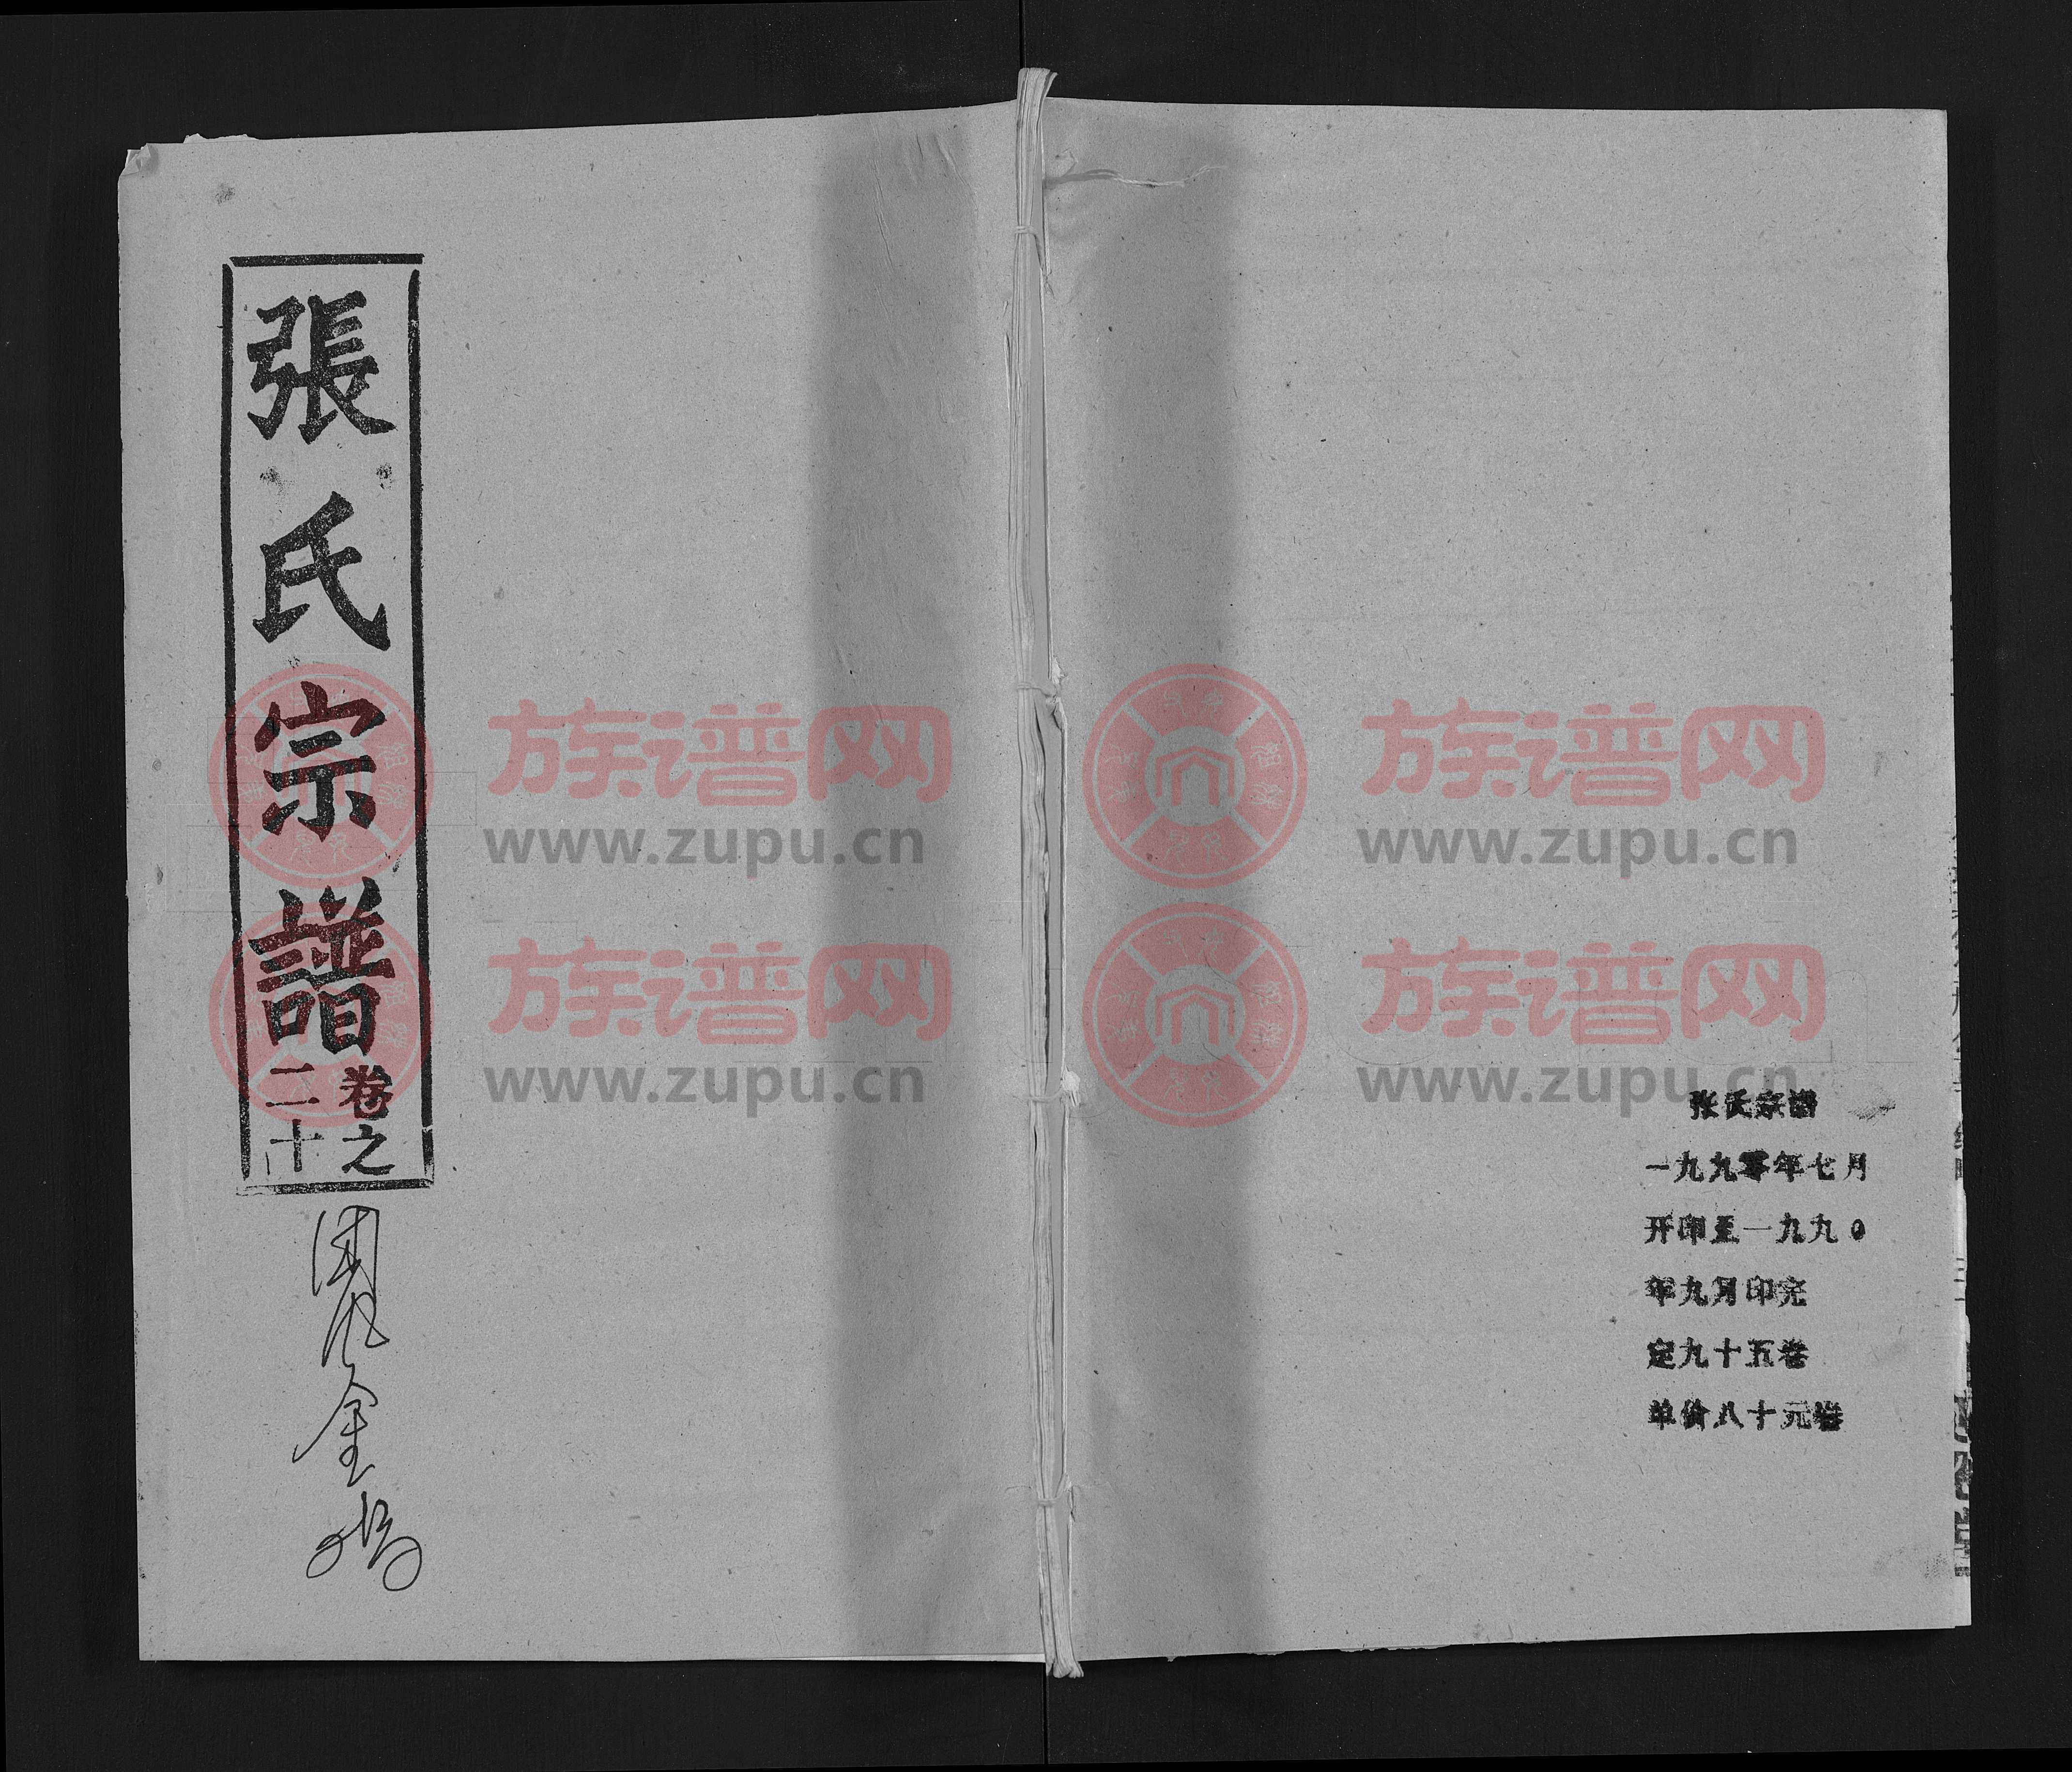 張氏宗譜
卷之
二十
金
张氏宗谱
一九九零年七月
开印至一九九0
年九月印完
定九十五卷
单价八十元卷
族谱网
www.zupu.cn
族谱网
www.zupu.cn
族谱网
www.zupu.cn
族谱网
www.zupu.cn